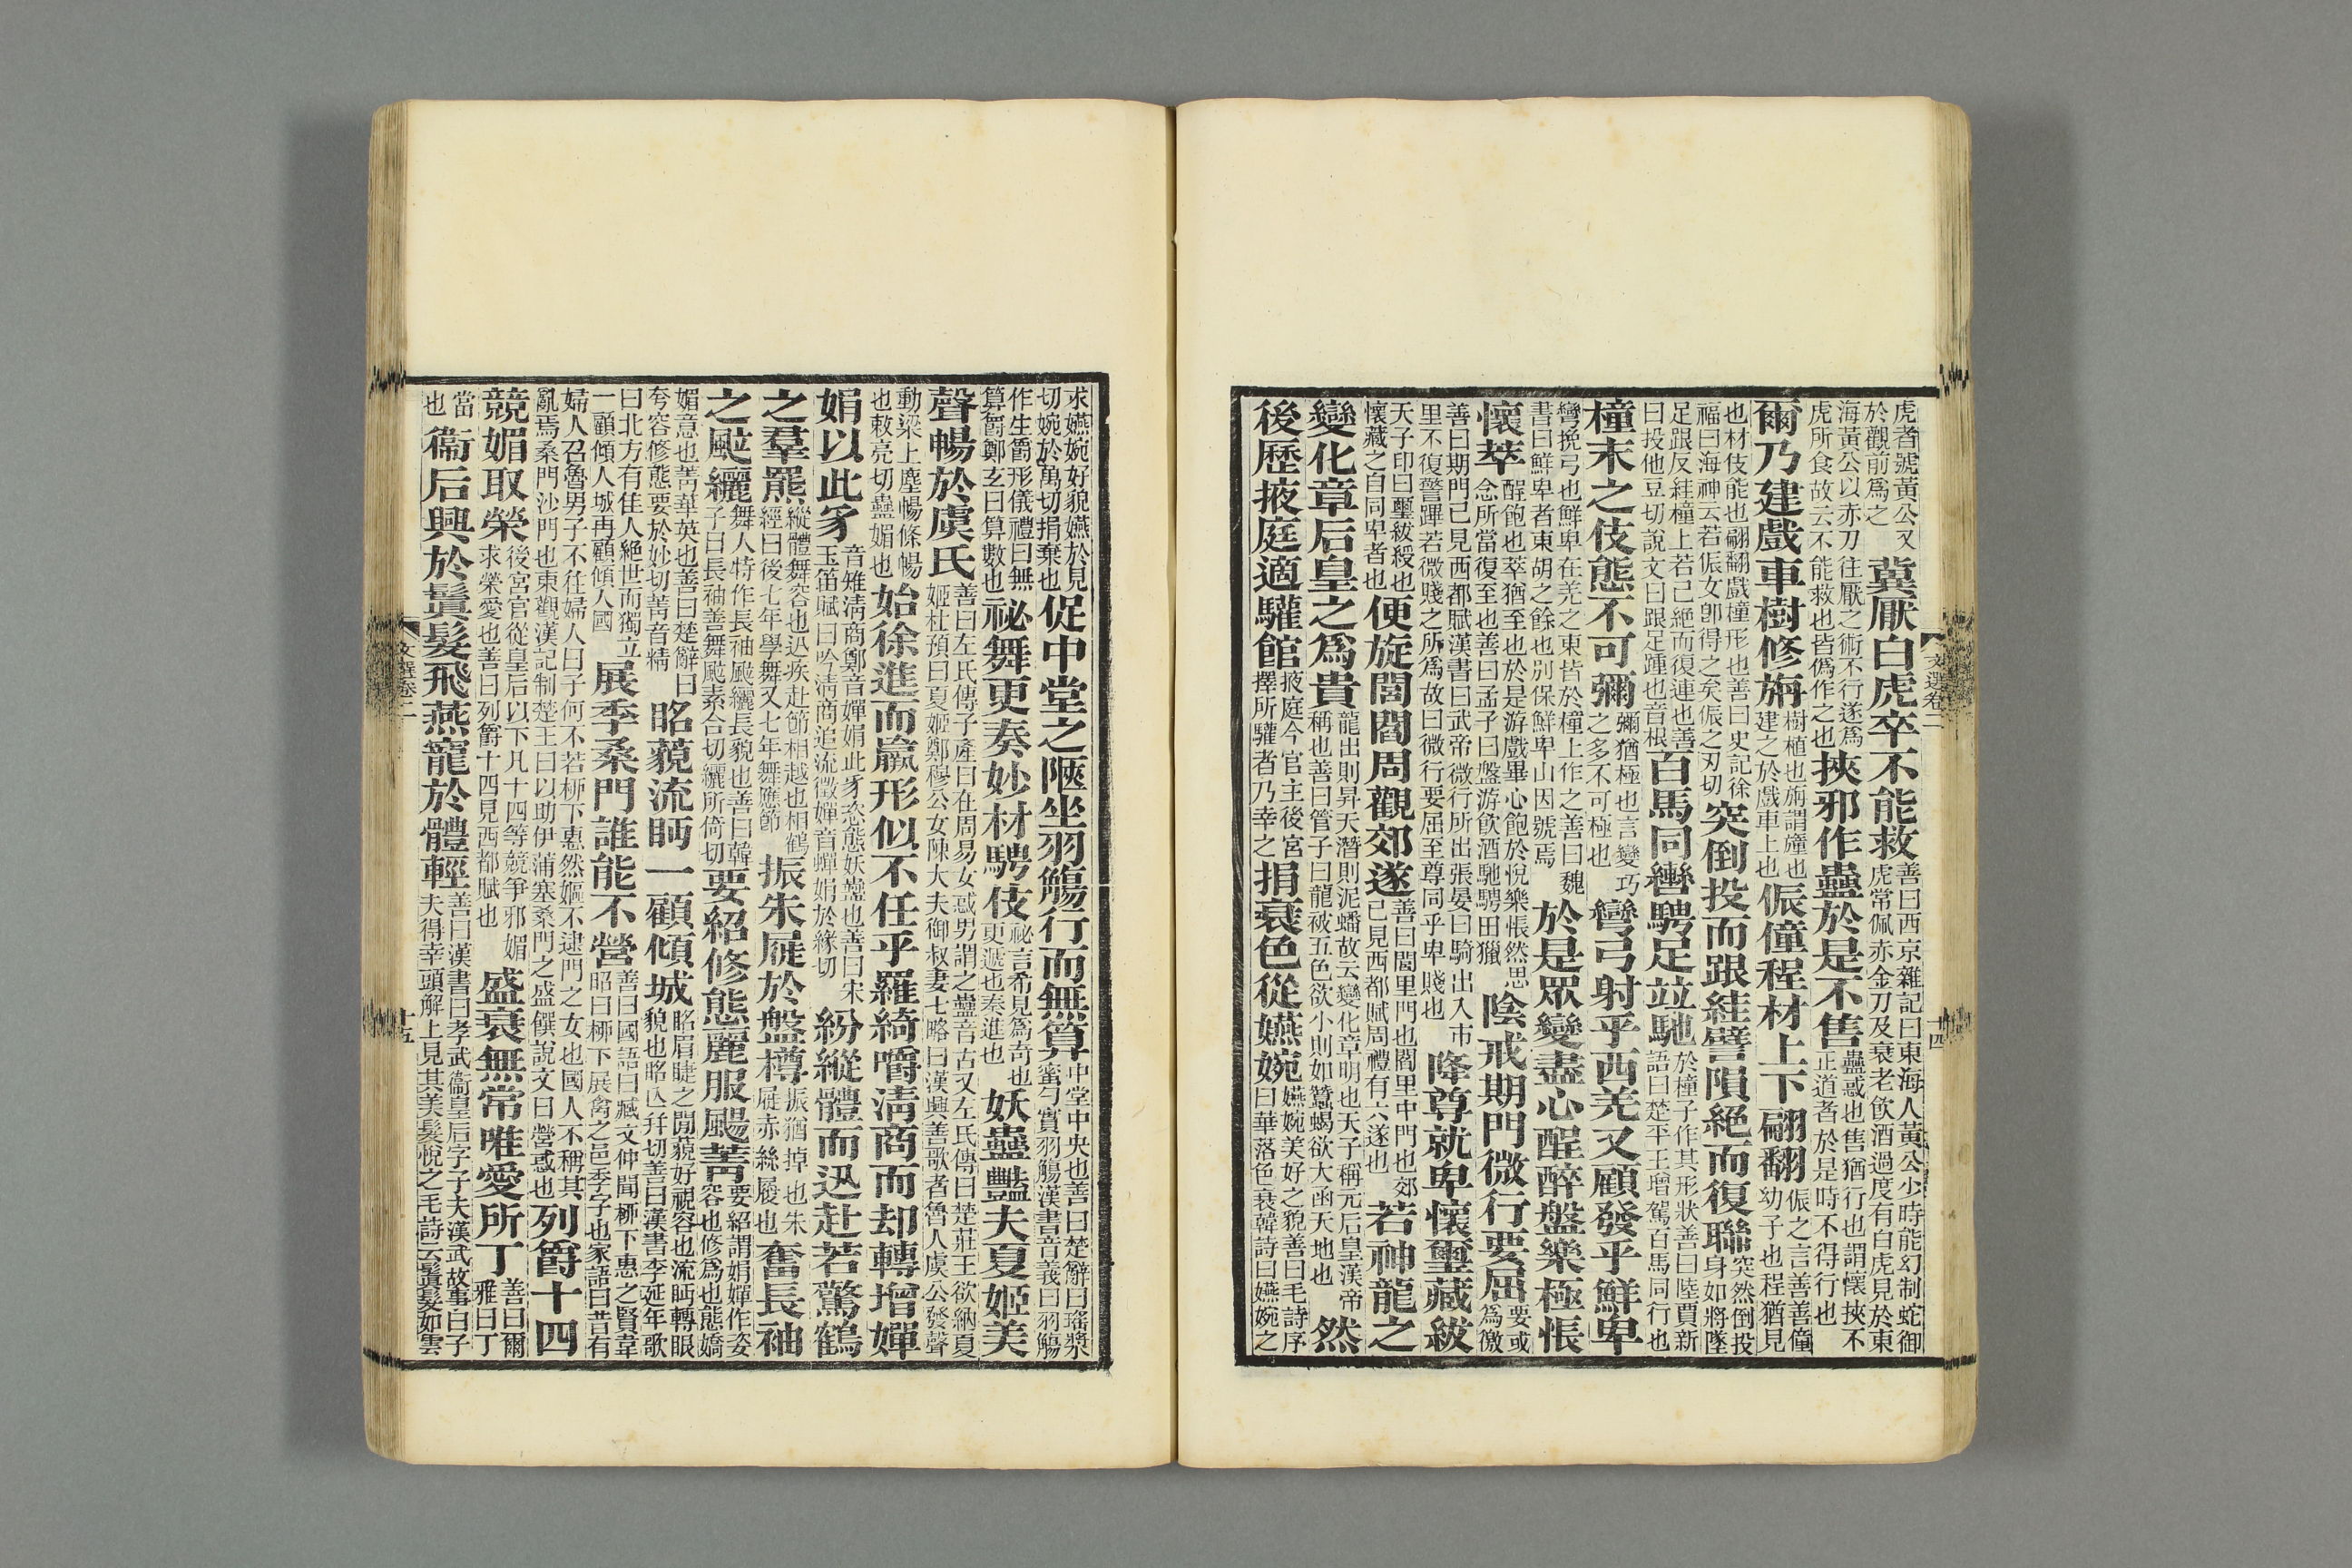 虎者號黃公又於觀前爲之冀厭白虎卒不能救善曰西京雜記曰東海人黃公少時能幻制蛇御虎常佩赤金刀及衰老飲酒過度有白虎見於東
海黃公以赤刀往厭之術不行遂爲虎所食故云不能救也皆僞作之也挾邪作蠱於是不售蠱惑也售猶行也謂懷挾不正道者於是時不得行也
爾乃建戲車樹修旃樹植也旃謂橦也建之於戲車上也侲僮程材上下翩翻侲之言善善僮幼子也程猶見
也材伎能也翩翻戲橦形也善曰史記徐福曰海神云若侲女卽得之矣侲之刃切突倒投而跟絓譬隕絕而復聯突然倒投身如將墜
足跟反絓橦上若已絕而復連也善曰投他豆切說文曰跟足踵也音根百馬同轡騁足竝馳於橦子作其形狀善曰陸賈新語曰楚平王增駕百馬同行也
橦末之伎態不可彌彌猶極也言變巧之多不可極也彎弓射乎西羌又顧發乎鮮卑
彎挽弓也鮮卑在羌之東皆於橦上作之善曰魏書曰鮮卑者東胡之餘也別保鮮卑山因號焉於是眾變盡心酲醉盤樂極悵
懷萃酲飽也萃猶至也於是游戲畢心飽於悅樂悵然思念所當復至也善曰孟子曰盤游飲酒馳騁田獵陰戒期門微行要屈要或爲徼
善曰期門已見西都賦漢書曰武帝微行所出張晏曰騎出入市里不復警蹕若微賤之所爲故曰微行要屈至尊同乎卑賤也降尊就卑懷璽藏紱
天子印曰璽紱綬也懷藏之自同卑者也便旋閭閻周觀郊遂善曰閭里門也閻里中門也郊已見西都賦周禮有六遂也若神龍之
變化章后皇之爲貴龍出則昇天潛則泥蟠故云變化章明也天子稱元后皇漢帝稱也善曰管子曰龍被五色欲小則如蠶蠋欲大函天地也然
後歷掖庭適驩館掖庭今官主後宮擇所驩者乃幸之捐衰色從嬿婉嬿婉美好之貌善曰毛詩序曰華落色衰韓詩曰嬿婉之
文選卷二
十四
求嬿婉好貌嬿於見切婉於萬切捐棄也促中堂之陿坐羽觴行而無算中堂中央也善曰楚辭曰瑤漿蜜勺實羽觴漢書音義曰羽觴
作生爵形儀禮曰無算爵鄭玄曰算數也祕舞更奏妙材騁伎祕言希見爲奇也更遞也奏進也妖蠱豔夫夏姬美
聲暢於虞氏善曰左氏傳子產曰在周易女惑男謂之蠱音古又左氏傳曰楚莊王欲納夏姬杜預曰夏姬鄭穆公女陳大夫御叔妻七略曰漢興善歌者魯人虞公發聲
動梁上塵暢條暢也敹亮切蠱媚也始徐進而羸形似不任乎羅綺嚼淸商而却轉增嬋
娟以此豸音雉淸商鄭音嬋娟此豸恣態妖蠱也善曰宋玉笛賦曰吟淸商追流徵嬋音蟬娟於緣切紛縱體而迅赴若驚鶴
之羣罷縱體舞容也迅疾赴節相越也相鶴經曰後七年學舞又七年舞應節振朱屣於盤樽振猶掉也朱屣赤絲履也奮長袖
之颯纚舞人特作長袖颯纚長貌也善曰韓子曰長袖善舞颯素合切纚所倚切要紹修態麗服颺菁要紹謂娟嬋作姿容也修爲也態嬌
媚意也菁華英也善曰楚辭曰夸容修態要於妙切菁音精眳藐流眄一顧傾城眳眉睫之閒藐好視容也流眄轉眼貌也眳亾幷切善曰漢書李延年歌
曰北方有佳人絕世而獨立一顧傾人城再顧傾人國展季桑門誰能不營善曰國語曰臧文仲聞柳下惠之賢韋昭曰柳下展禽之邑季字也家語曰昔有
婦人召魯男子不往婦人曰子何不若柳下惠然嫗不逮門之女也國人不稱其亂焉桑門沙門也東觀漢記制楚王曰以助伊蒲塞桑門之盛饌說文曰營惑也列爵十四
競媚取榮後宮官從皇后以下凡十四等競爭邪媚求榮愛也善曰列爵十四見西都賦也盛衰無常唯愛所丁善曰爾雅曰丁
當也衞后興於鬒髮飛燕寵於體輕善曰漢書曰孝武衞皇后字子夫漢武故事曰子夫得幸頭解上見其美髮悅之毛詩云鬒髮如雲
文選卷二
十五